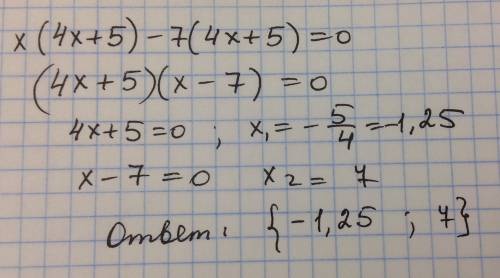 x(4x+5)-7(4x+5)=0
(4x+5)(x-7)=0
4x+5=0 ; x₁=-5/4=-1,25
x-7=0 x₂= 7
Ответ: {-1,25 ; 7}